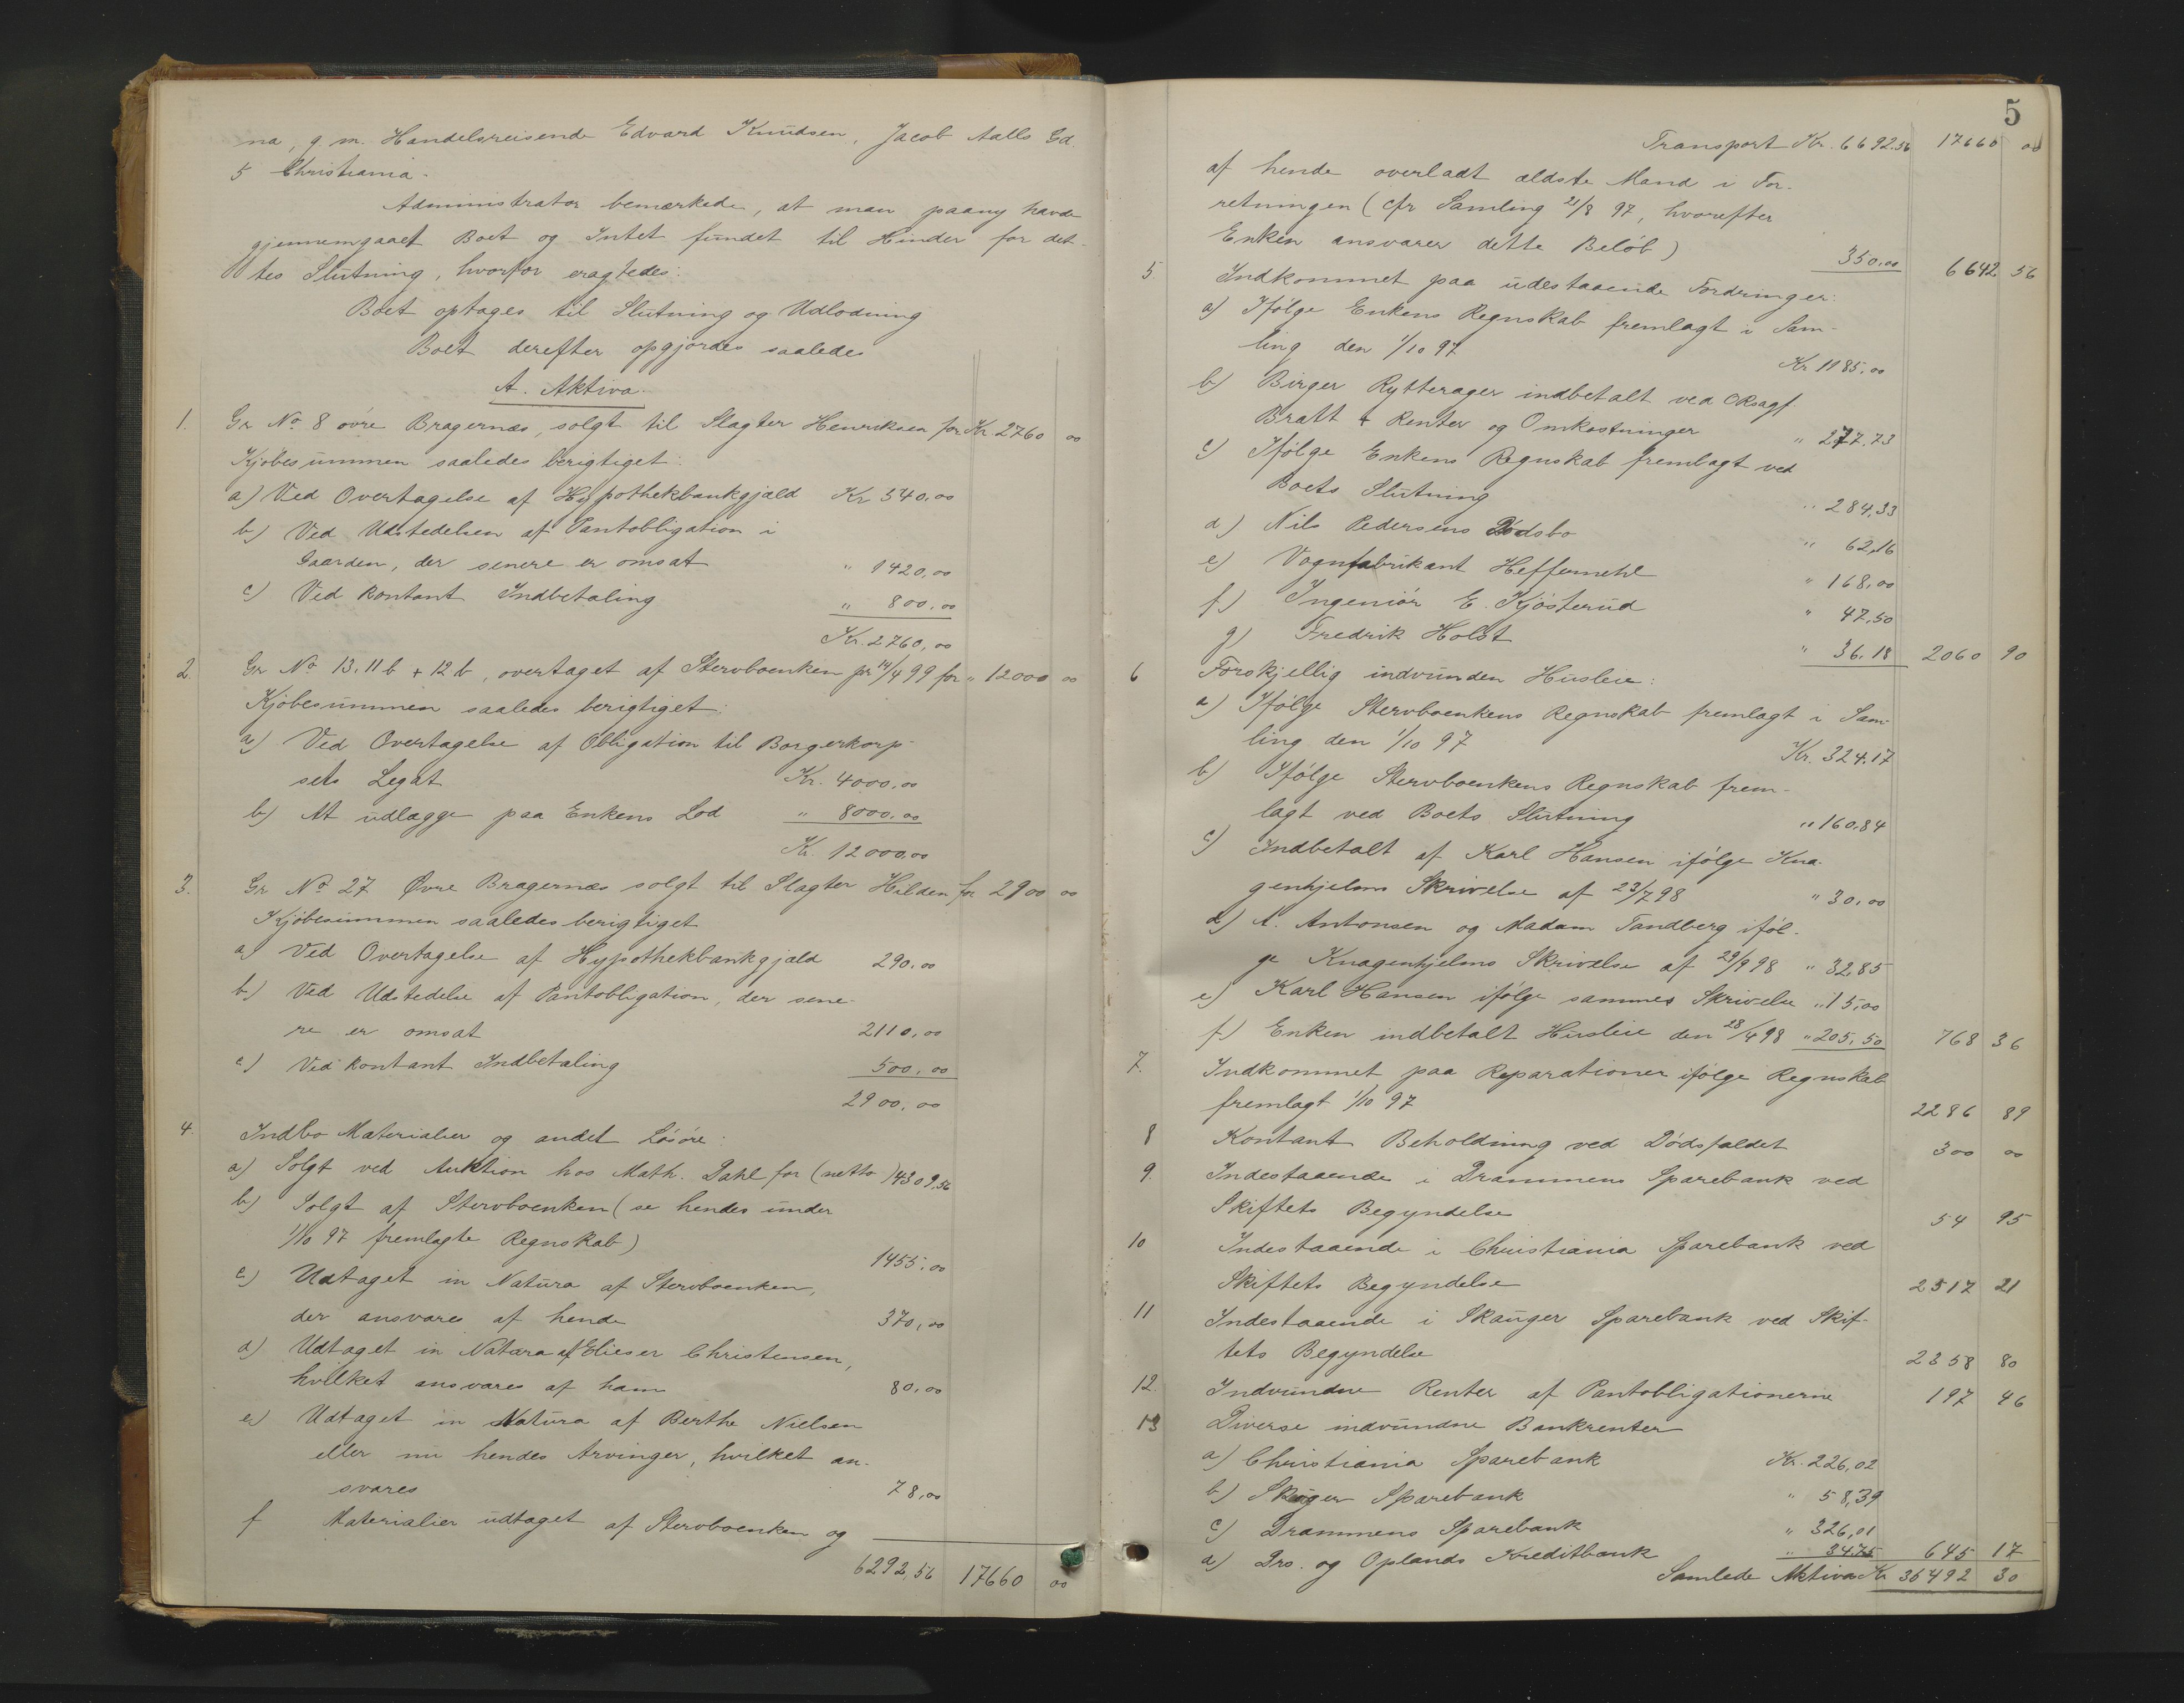 na, g. m. Handelsreisende Edvard Knudsen, Jacob Aalls Gd.
5 Christiania.
Administrator bemærkede, at man paany havde
gjennemgaaet Boet og Intet fundet til Hinder for det-
tes Slutning, hvorfor eragtedes:
Boet optages til Slutning og Udlodning
Boet derefter opgjordes saaledes
A. Aktiva.
1. Gr No 8 øvre Bragernæs, solgt til Slagter Henriksen for Kr 2760 00
Kjøbesummen saaledes berigtiget:
a) Ved Overtagelse af Hypothekbankgjæld Kr 540,00
b) Ved Udstedelsen af Pantobligation i
Gaarden, der senere er omsat " 1420,00
c) Ved kontant Indbetaling " 800,00
Kr. 2760,00
2. Gr No 13, 11 b + 12 b, overtaget af Stervboenken pr 14/4 99 for " 12000 00
Kjøbesummen saaledes berigtiget:
a) Ved Overtagelse af Obligation til Borgerkorp-
sets Legat Kr. 4000,00
b) At udlægge paa Enkens Lod " 8000,00
Kr. 12000,00
3. Gr No 27 Øvre Bragernæs solgt til Slagter Hilden for 2900 00
Kjøbesummen saaledes berigtiget
a) Ved Overtagelse af Hypothekbankgjæld 290,00
b) Ved Udstedelse af Pantobligation, der sene-
re er omsat 2110,00
c) Ved kontant Indbetaling 500,00
2900,00
4. Indbo Materialier og andet Løsøre:
a) Solgt ved Auktion hos Math. Dahl for (netto) 4309,56
b) Solgt af Stervboenken (se hendes under
1/10 97 fremlagte Regnskab) 1455,00
c) Udtaget in Natura af Stervboenken,
der ansvares af hende 370,00
d) Udtaget in Natura af Elieser Christensen,
hvilket ansvares af ham 80,00
e) Udtaget in Natura af Berthe Nielsen
eller nu hendes Arvinger, hvilket an-
svares 78,00
f Materialier udtaget af Stervboenken og
6292,56 17660 00
5
Transport Kr. 6692.56 17660 00
af hende overladt ældste Mand i For-
retningen (cfr Samling 21/8 97, hvorefter
Enken ansvarer dette Beløb) 350,00 6642 56
5. Indkommet paa udestaaende Fordringer:
a) Ifølge Enkens Regnskab fremlagt i Sam-
ling den 1/10 97 Kr 1185,00
b) Birger Rytterager indbetalt ved Oksagf
Bratt + Renter og Omkostninger " 277.73
c) Ifølge Enkens Regnskab fremlagt ved
Boets Slutning " 284,33
d) Nils Pedersens Dødsbo " 62,16
e) Vognfabrikant Heffermehl " 168,00
f) Ingeniør E. Kjøsterud " 47,50
g) Fredrik Holst " 36.18 2060 90
6 Forskjellig indvunden Husleie:
a) Ifølge Stervboenkens Regnskab fremlagt i Sam-
ling den 1/10 97 Kr. 324.17
b) Ifølge Stervboenkens Regnskab frem-
lagt ved Boets Slutning " 160,84
c) Indbetalt af Karl Hansen ifølge Kna-
genhjelms Skrivelse af 23/7 98 " 30,00
d) A. Antonsen og Madam Tandberg iføl-
ge Knagenhjelms Skrivelse af 29/9 98 " 32,85
e) Karl Hansen ifølge sammes Skrivelse " 15,00
f) Enken indbetalt Husleie den 28/4 98 " 205,50 768 36
7. Indkommet paa Reparationer ifølge Regnskab
fremlagt 1/10 97 2286 89
8 Kontant Beholdning ved Dødsfaldet 300 00
9. Indestaaende i Drammens Sparebank ved
Skiftets Begyndelse 54 95
10 Indestaaende i Christiania Sparebank ved
Skiftets Begyndelse 2517 21
11 Indestaaende i Skauger Sparebank ved Skif-
tets Begyndelse 2358 80
12 Indvundne Renter af Pantobligationerne 197 46
13 Diverse indvundne Bankrenter
a) Christiania Sparebank Kr. 226,02
b) Skoger Sparebank " 58,39
c) Drammens Sparebank " 326,01
d) Dro. og Oplands Kreditbank " 34.75 645 17
Samlede Aktiva Kr 35492 30